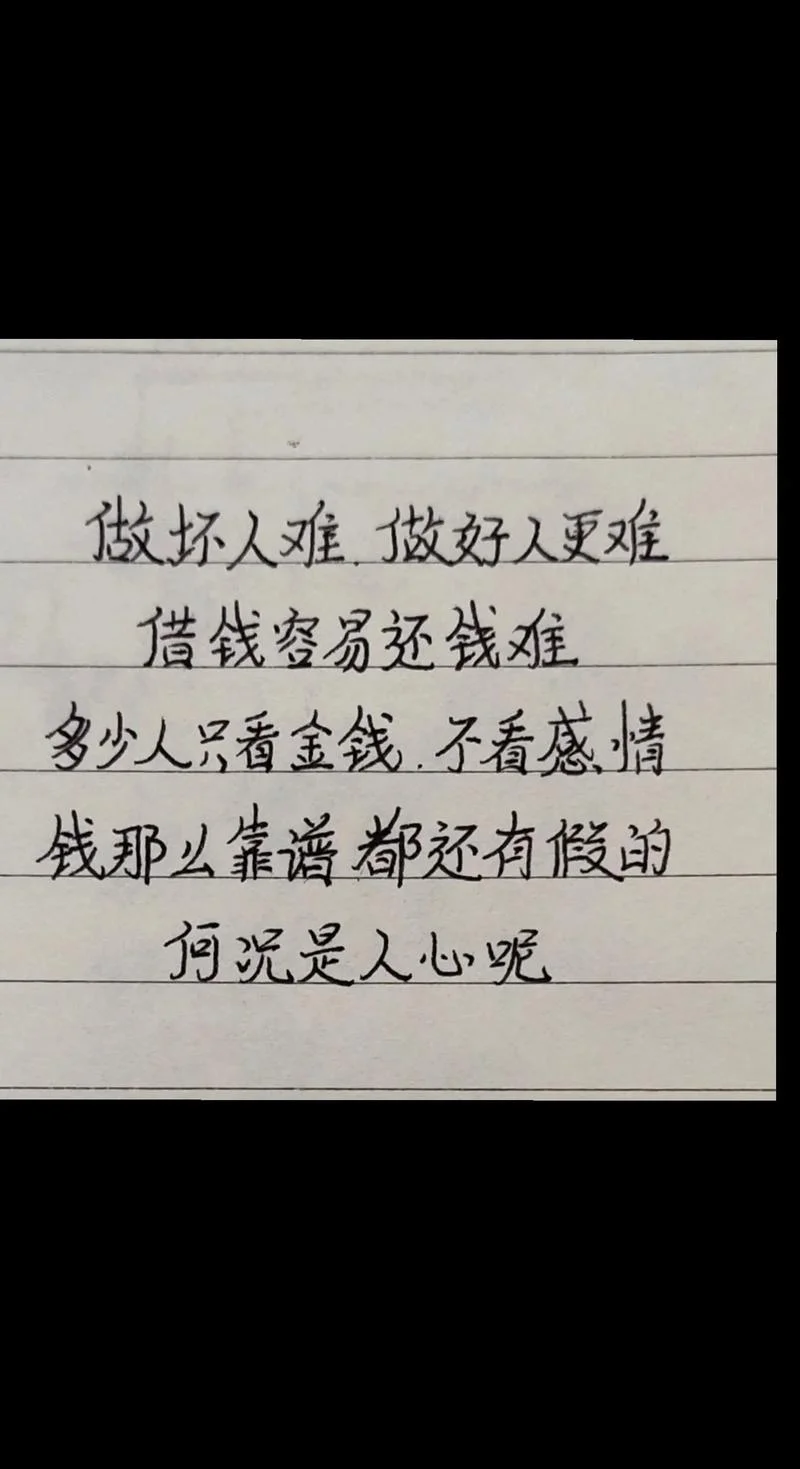 做坏人难.做好人更难
借钱容易还钱难
多少人只看金钱.不看感情
钱那么靠谱都还有假的
何况是人心呢